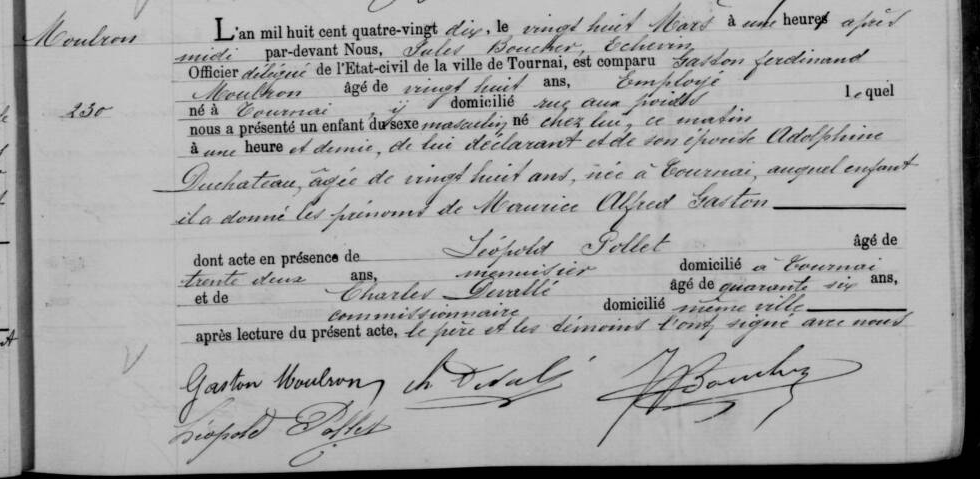 Moulron
230
L'an mil huit cent quatre-vingt dix, le vingt huit Mars à une heures après
midi par-devant Nous, Jules Boucher, Echevin
Officier délégué de l'Etat-civil de la ville de Tournai, est comparu Gaston ferdinand
Moulron âgé de vingt huit ans, Employé
né à Tournai, y domicilié rue aux poids lequel
nous a présenté un enfant du sexe masculin né chez lui, ce matin
à une heure et demie, de lui déclarant et de son épouse Adolphine
Duchateau, âgée de vingt huit ans, née à Tournai, auquel enfant
il a donné les prénoms de Maurice Alfred Gaston
dont acte en présence de Léopold Pollet âgé de
trente deux ans, menuisier domicilié à Tournai
et de Charles Devallé âgé de quarante six ans,
commissionnaire domicilié même ville
après lecture du présent acte, le père et les témoins l'ont signé avec nous
Gaston Moulron Ch Devalé J Boucher
Léopold Pollet